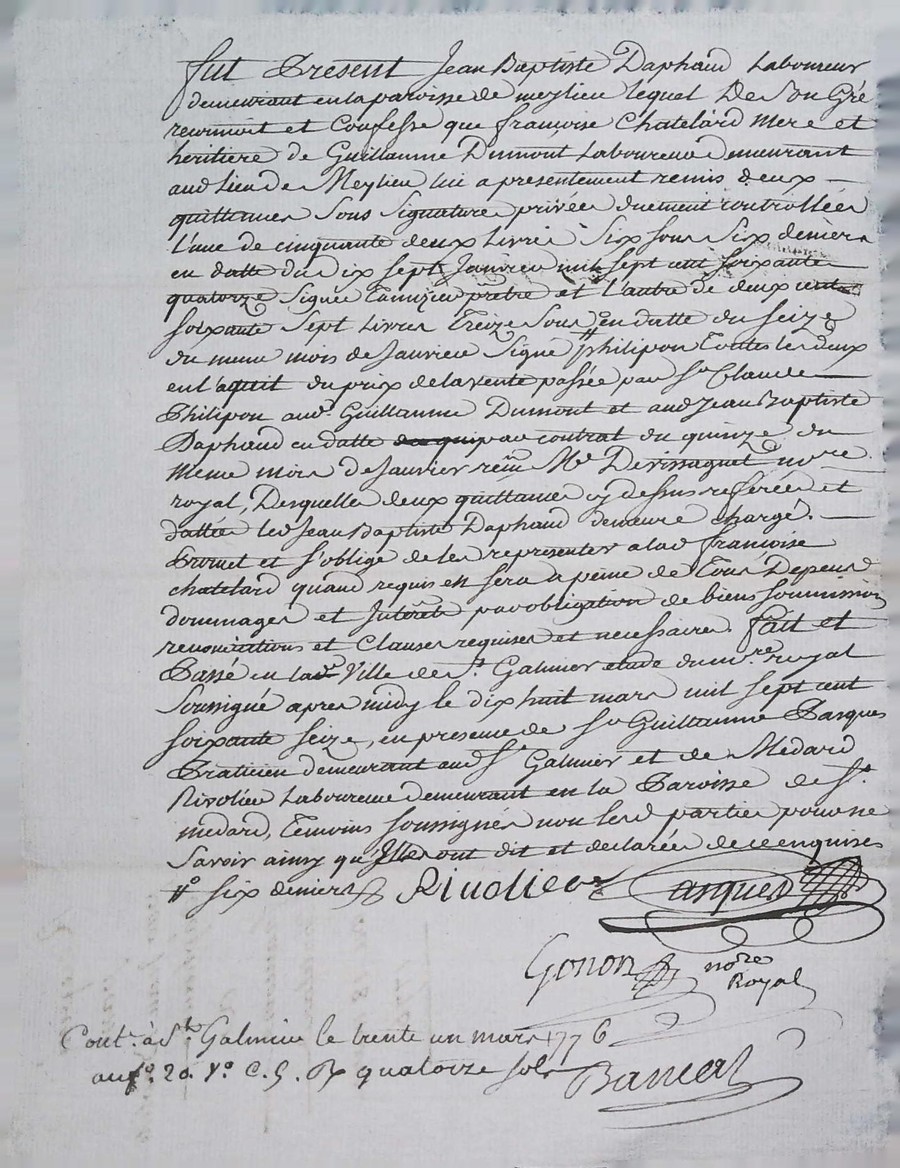 fut Present Jean Baptiste Daphaud Laboureur
demeurant en la paroisse de meylieu lequel De Son Gré
reconnoit et Confesse que françoise Chatelard Mere et
heritiere de Guillaume Dumont Laboureur Demeurant
aud Lieu de Meylieu lui a presentement remis deux
quittances Sous Signatures privées duement controllées
L'une de cinquante deux Livres Six sous Six deniers
en datte du Dix sept Janvier mil sept cent soixante
quatorze Signée prêtre et L'autre de deux cents
soixante Sept Livres Treize Sous # En datte du Seize
du meme mois de Janvier Signé philipon Toutes les deux
en l'aquit du prix de la vente passée par Sr Claude
Philipon aud. Guillaume Dumont et aud Jean Baptiste
Daphaud en datte au contrat du quinze du
Meme mois de Janvier Me Devissaguet nore
royal, Desquelles deux quittances cy dessus referées et
dattées led Jean Baptiste Daphaud demeure chargé.
Promet et s'oblige de les representer a lad françoise
chatelard quand requis en sera a peine de Tous Depens
dommages et Interets par obligation de biens Soumissions
renonciations et Clauses requises et necessaires. fait et
Passé en lad Ville de St Galmier etude du nore royal
Soussigné apres midy le dix huit mars mil sept cent
soixante seize, en presence de Sr Guillaume Pasques
Praticien demeurant aud St Galmier et de Medard
Rivolier Laboureur demeurant en la Paroisse de St
medard, Temoins soussignes non lesd parties pour ne
Savoir ainsy qu'Elles ont dit et declarés de ce enquises
# six deniers Rivolier Pasques
Gonon nore
Royal
Cont. à St Galmier le trente un mars 1776
au fo. 20 Vo C. 5. R quatorze sols